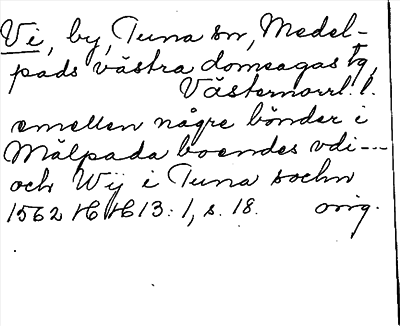 Vi, by, Tuna sn, Medel-
pads västra domsagas tg,
Västernorrl. l.
emellen någre bönder i
Mälpada boendes vdi---
och Wij i Tuna sochn
1562 HH 13:1, s. 18. orig.